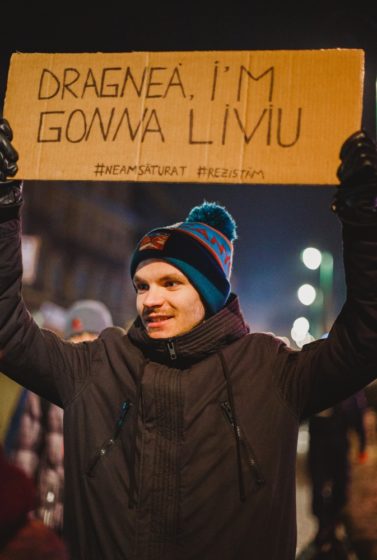 DRAGNEA, I'M
GONNA LIVIU
#NEAMSĂTURAT #REZISTĂM